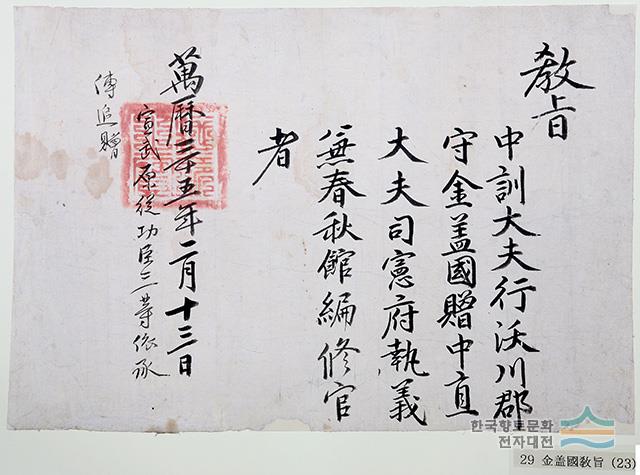 敎旨
中訓大夫行沃川郡
守金盖國贈中直
大夫司憲府執義
兼春秋館編修官
者
萬曆三十五年二月十三日
宣武原從功臣三等依承
傳追贈
한국향토문화
전자대전
29 金盖國敎旨 (23)